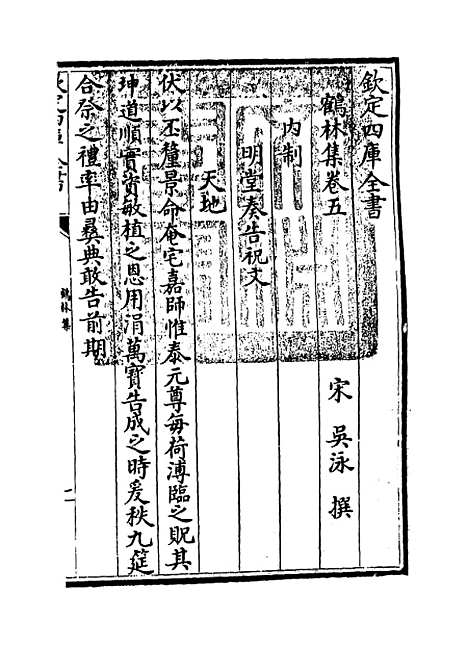 欽定四庫全書
鶴林集卷五
宋 吳泳 撰
内制
明堂奏告祝文
天地
伏以丕釐景命奄宅嘉師惟泰元尊每荷溥臨之貺其
坤道順實資敏植之恩用涓萬寶告成之時爰秩九筵
合祭之禮率由彛典敢告前期
欽定四庫全書
鶴林集
一